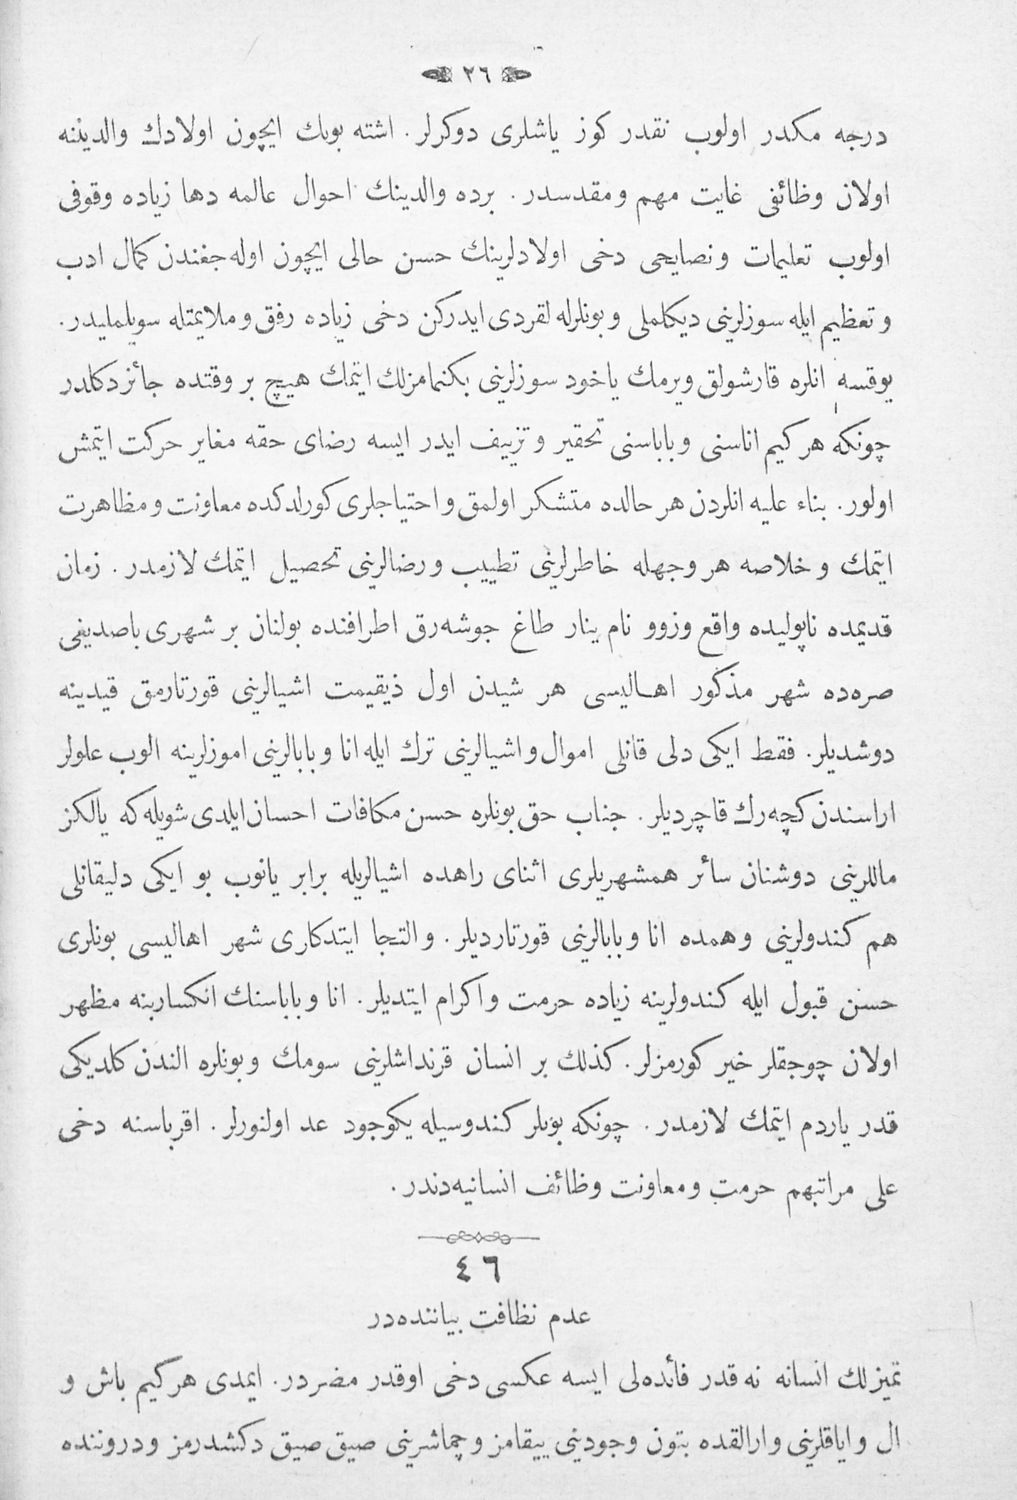 ٢٦
درجه مكدر اولوب نقدر كوز ياشلرى دوكرلر . اشته بونك ايچون اولادك والديننه
اولان وظائفى غايت مهم ومقدسدر . برده والدينك احوال عالمه دها زياده وقوفى
اولوب تعليمات ونصايحى دخى اولادلرينك حسن حالى ايچون اوله جغندن كمال ادب
و تعظيم ايله سوزلرينى ديكلملى وبونلرله لقردى ايدركن دخى زياده رفق وملايمتله سويلمليدر.
يوقسه انلره قارشولق ويرمك ياخود سوزلرينى بكنمامزلك ايتمك هيچ بر وقتده جائز دكلدر
چونكه هركيم اناسنى وباباسنى تحقير وتزييف ايدر ايسه رضاى حقه مغاير حركت ايتمش
اولور. بناء عليه انلردن هر حالده متشكر اولمق واحتياجلرى كورلدكده معاونت ومظاهرت
ايتمك و خلاصه هر وجهله خاطرلرينى تطييب ورضالرينى تحصيل ايتمك لازمدر . زمان
قديمده ناپوليده واقع وزوو نام ينار طاغ جوشه رق اطرافنده بولنان بر شهرى باصديغى
صره ده شهر مذكور اهاليسى هر شيدن اول ذيقيمت اشيالرينى قورتارمق قيدينه
دوشديلر. فقط ايكى دلى قانلى اموال واشيالرينى ترك ايله انا وبابالرينى اموزلرينه الوب علولر
اراسندن كچه رك قاچرديلر . جناب حق بونلره حسن مكافات احسان ايلدى شويله كه يالكز
ماللرينى دوشنان سائر همشهريلرى اثناى راهده اشيالريله برابر يانوب بو ايكى دليقانلى
هم كندولرينى وهمده انا وبابالرينى قورتارديلر. والتجا ايتدكارى شهر اهاليسى بونلرى
حسن قبول ايله كندولرينه زياده حرمت واكرام ايتديلر. انا وباباسنك انكسارينه مظهر
اولان چوجقلر خير كورمزلر. كذلك بر انسان قرنداشلرينى سومك وبونلره الندن كلديكى
قدر ياردم ايتمك لازمدر . چونكه بونلر كندوسيله يكوجود عد اولنورلر . اقرباسنه دخى
على مراتبهم حرمت ومعاونت وظائف انسانيه دندر .
٤٦
عدم نظافت بياننده در
تميزلك انسانه نه قدر فائده لى ايسه عكسى دخى اوقدر مضردر. ايمدى هركيم باش و
ال واياقلرينى وارالقده بتون وجودينى ييقامز وچماشرينى صيق صيق دكشدرمز ودروننده